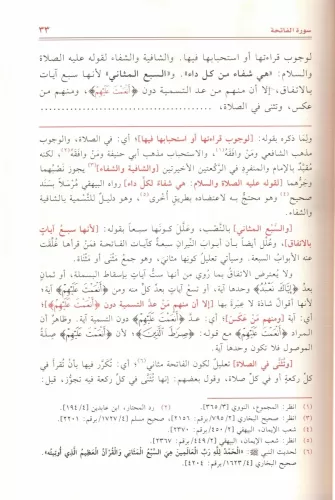 سورة الفاتحة
٣٣
لوجوب قراءتها أو استحبابها فيها. والشافية والشفاء لقوله عليه الصلاة
والسلام: «هي شفاء من كل داء». و«السبع المثاني» لأنها سبع آيات
بالاتفاق، إلا أن منهم من عد التسمية دون ﴿أَنْعَمْتَ عَلَيْهِمْ﴾، ومنهم من
عكس، وتثنى في الصلاة،
ولِمَا ذكره بقوله: [لوجوب قراءتها أو استحبابها فيها]؛ أي: في الصلاة، والوجوب
مذهب الشافعي ومَنْ وافقَهُ(١)، والاستحباب مذهب أبي حنيفة ومَنْ وافقَهُ(٢)، لكنه
مقيَّد بالإمام والمنفرد في الركعتين الأخيرتين [والشافية والشفاء](٣) يجوز نصْبُهما
وجرُّهما [لقوله عليه الصلاة والسلام: هي شفاءٌ لكلِّ داء] رواه البيهقي مُرْسَلاً بسندٍ
صحيح(٤) وهو محتجٌّ به لاعتضاده بطريقٍ أُخرى(٥)، وهو دليلٌ للتَّسمية بالشافية
والشفاء.
[والسَّبْع المثاني] بالنَّصْب، وعلَّل كونها سبعاً بقوله: [لأنها سبعُ آياتٍ
بالاتفاق]، وعُلِّل أيضاً بأن أبواب النِّيران سبعةٌ كآيات الفاتحة، فمَنْ قرأها غُلِّقت
عنه الأبواب السبعة. وسيأتي تعليلُ كونها مثاني، وهو جمعُ مُثَنَّى أو مَثْنَاة.
ولا يُعترض الاتفاقُ بما رُوي من أنها ستُّ آياتٍ بإسقاط البسملة، أو ثمانٍ
بعدِّ ﴿إِيَّاكَ نَعْبُدُ﴾ وحده آية، أو تسع آياتٍ بعدِّ كلٍّ منه ومن ﴿أَنْعَمْتَ عَلَيْهِمْ﴾ آية؛
لأنها أقوالٌ شاذة لا عِبْرةَ بها [إلا أن منهم مَنْ عدَّ التسمية دون ﴿أَنْعَمْتَ عَلَيْهِمْ﴾]؛
أي: آية [ومنهم مَنْ عَكَسَ]؛ أي: عدَّ ﴿أَنْعَمْتَ عَلَيْهِمْ﴾ دون التسمية آية. وظاهرٌ أن
﴿أَنْعَمْتَ عَلَيْهِمْ﴾ مع قوله: ﴿صِرَاطَ الَّذِينَ﴾؛ لأن ﴿أَنْعَمْتَ عَلَيْهِمْ﴾ صِلَةُ
الموصول فلا تكون وحدها آية.
[وتُثَنَّى في الصلاة] تعليلٌ لكون الفاتحة مثاني(٦)؛ أي: تُكرَّر فيها بأن تُقرأ في
كلِّ ركعةٍ أو في كلِّ صلاة، وقول بعضهم: إنها تُثَنَّى في كلِّ ركعة فيه تجوُّز، قيل:
(١) انظر: المجموع، النووي [٣/٣٦٥].
(٢) رد المحتار، ابن عابدين [٤/١٩٤].
(٣) انظر: صحيح البخاري [٢/٧٩٥/برقم: ٢١٥٦]. صحيح مسلم [٤/١٧٢٧/برقم: ٢٢٠١].
(٤) شعب الإيمان، البيهقي [٢/٤٥٠/برقم: ٢٣٧٠].
(٥) انظر: شعب الإيمان، البيهقي [٢/٤٤٩/برقم: ٢٣٦٧].
(٦) لحديث النبي ﷺ: «الْحَمْدُ لِلَّهِ رَبِّ الْعَالَمِينَ هِيَ السَّبْعُ الْمَثَانِي وَالْقُرْآنُ الْعَظِيمُ الَّذِي أُوتِيتُهُ».
صحيح البخاري [٤/١٦٢٣/برقم: ٤٢٠٤].